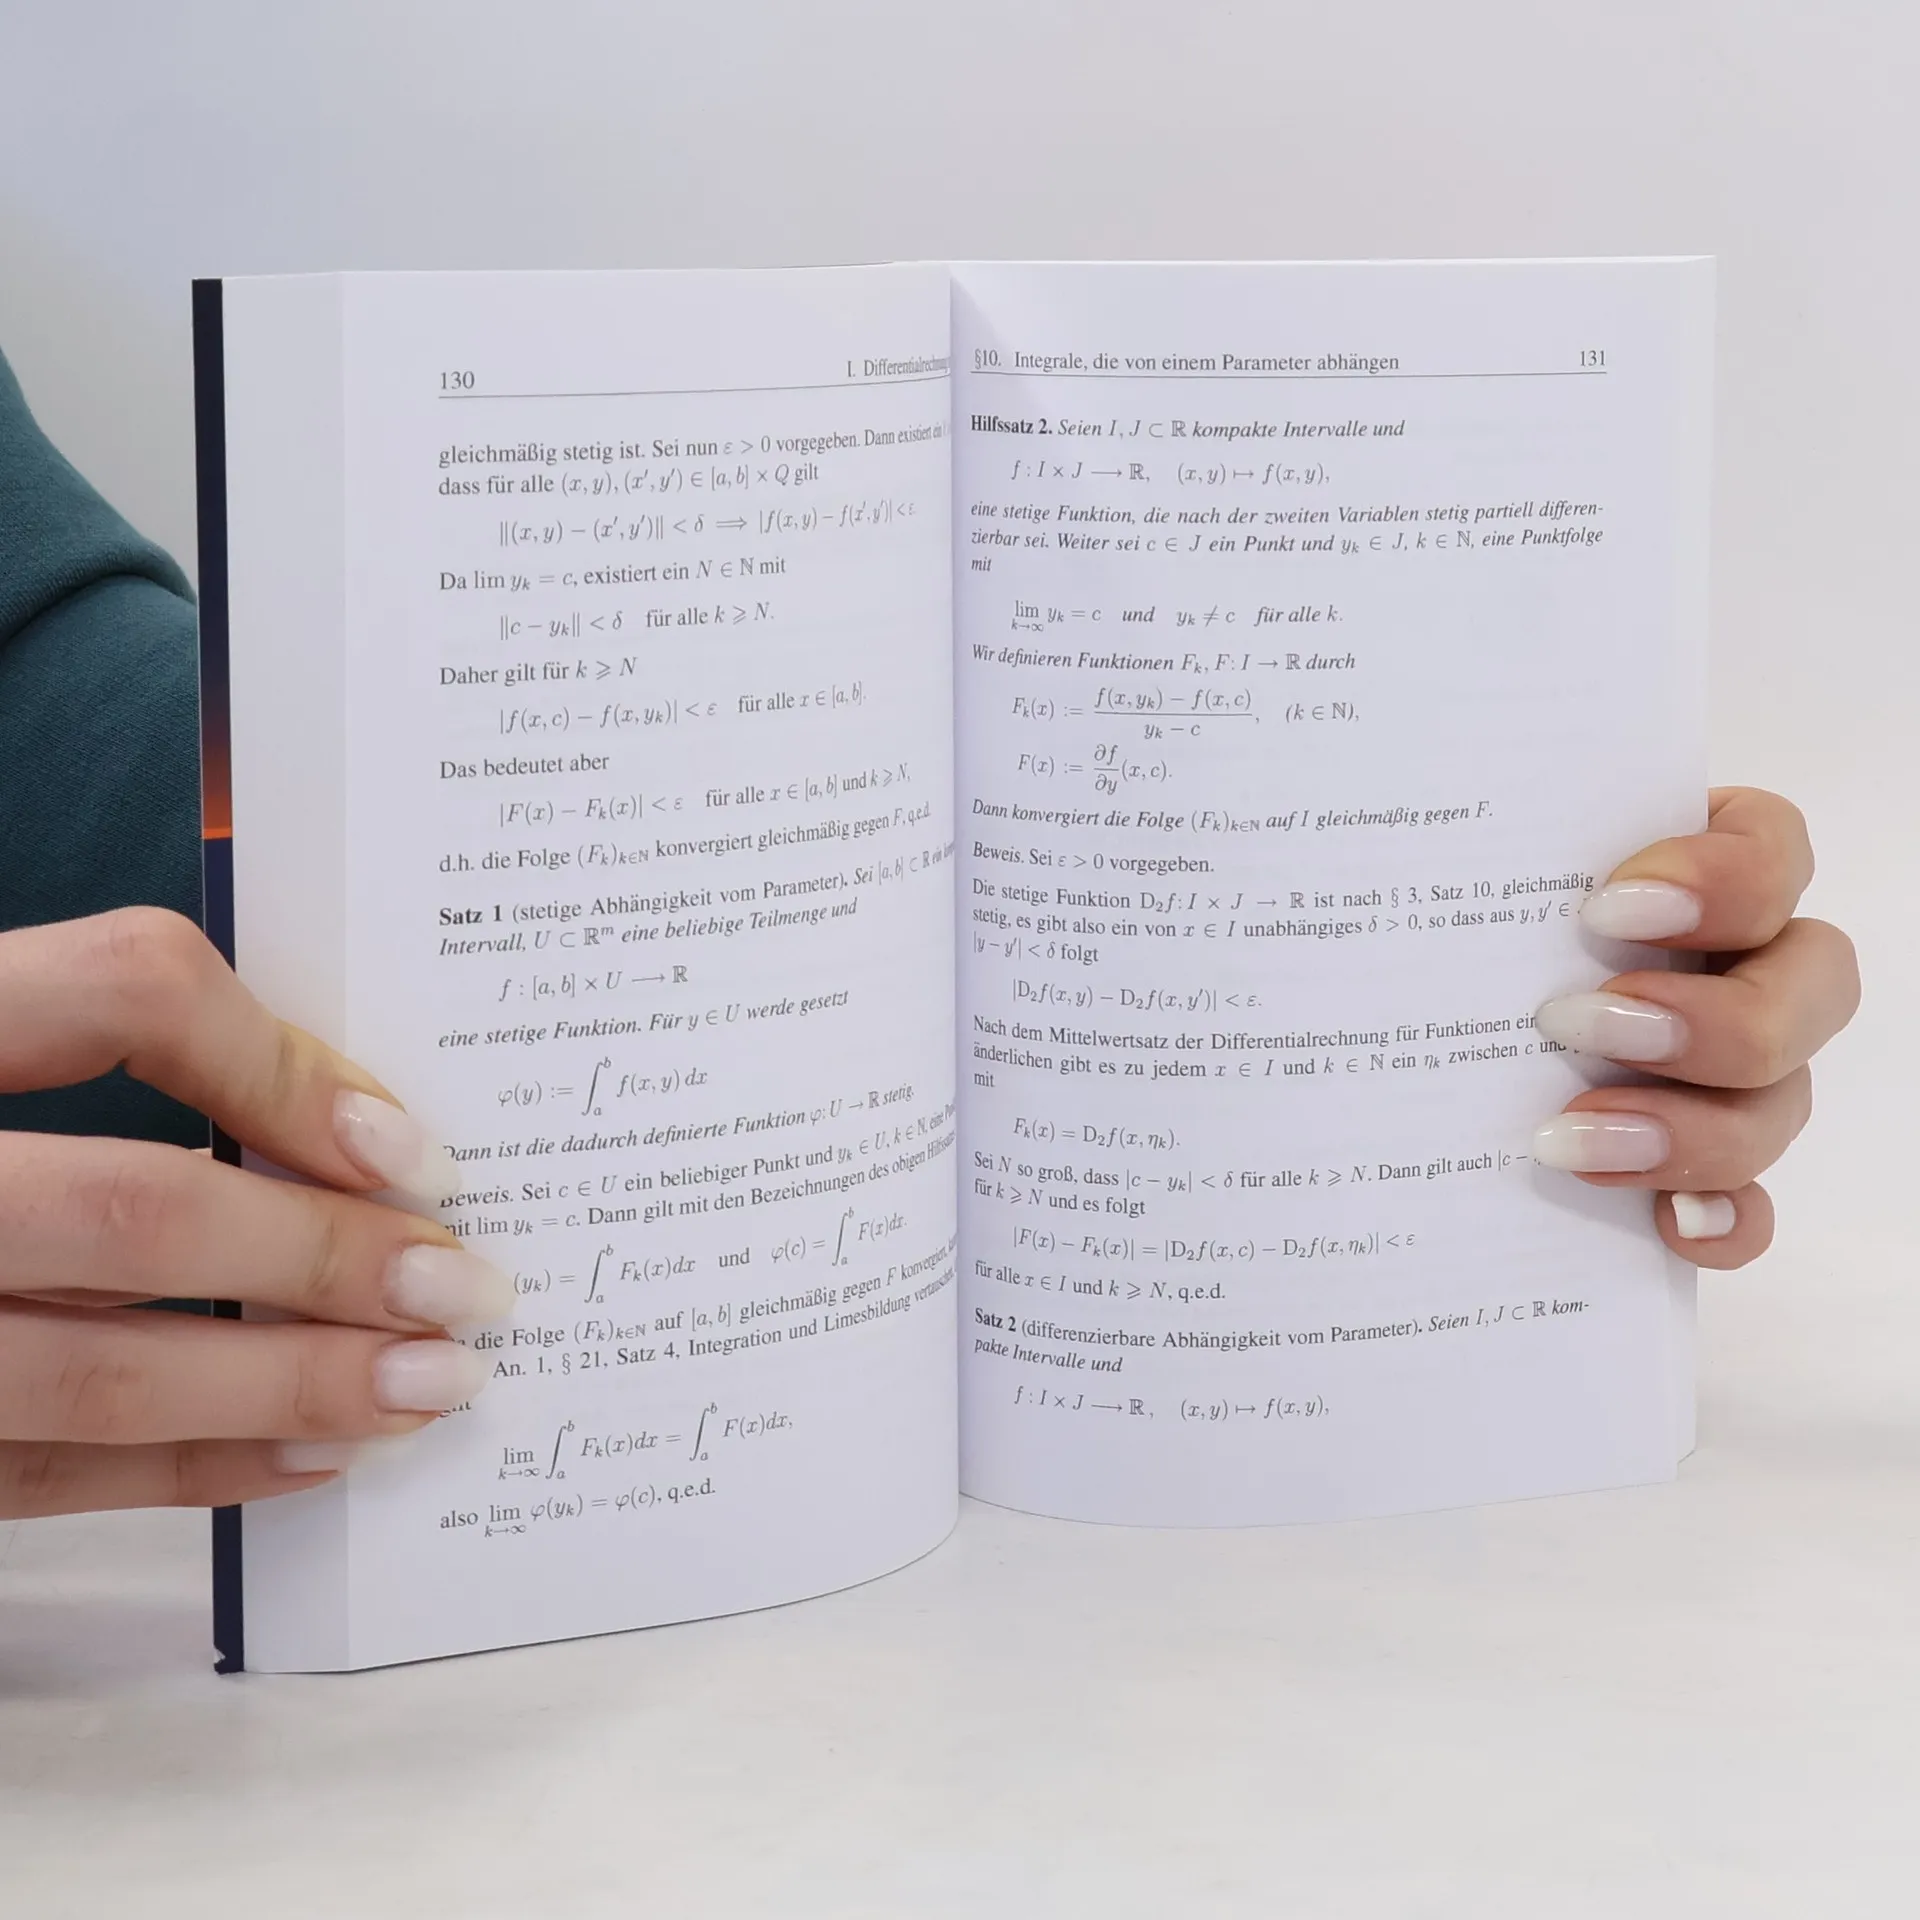 130
I. Differentialrechnung
gleichmäßig stetig ist. Sei nun ε > 0 vorgegeben. Dann existiert ein
dass für alle (x, y), (x′, y′) ∈ [a, b] × Q gilt
‖(x, y) − (x′, y′)‖ < δ ⟹ |f(x, y) − f(x′, y′)| < ε
Da lim yₖ = c, existiert ein N ∈ ℕ mit
‖c − yₖ‖ < δ für alle k ⩾ N.
Daher gilt für k ⩾ N
|f(x, c) − f(x, yₖ)| < ε für alle x ∈ [a, b].
Das bedeutet aber
|F(x) − Fₖ(x)| < ε für alle x ∈ [a, b] und k ⩾ N,
d.h. die Folge (Fₖ)ₖ∈ℕ konvergiert gleichmäßig gegen F, q.e.d.
Satz 1 (stetige Abhängigkeit vom Parameter). Sei [a, b] ⊂ ℝ ein
Intervall, U ⊂ ℝᵐ eine beliebige Teilmenge und
f : [a, b] × U ⟶ ℝ
eine stetige Funktion. Für y ∈ U werde gesetzt
φ(y) := ∫ₐᵇ f(x, y) dx
Dann ist die dadurch definierte Funktion φ: U → ℝ stetig.
Beweis. Sei c ∈ U ein beliebiger Punkt und yₖ ∈ U, k ∈ ℕ, eine
mit lim yₖ = c. Dann gilt mit den Bezeichnungen des obigen Hilfssatzes
(yₖ) = ∫ₐᵇ Fₖ(x)dx und φ(c) = ∫ₐᵇ F(x)dx.
die Folge (Fₖ)ₖ∈ℕ auf [a, b] gleichmäßig gegen F konvergiert,
An. 1, § 21, Satz 4, Integration und Limesbildung vertauschen,
lim k→∞ ∫ₐᵇ Fₖ(x)dx = ∫ₐᵇ F(x)dx,
also lim k→∞ φ(yₖ) = φ(c), q.e.d.
§10. Integrale, die von einem Parameter abhängen 131
Hilfssatz 2. Seien I, J ⊂ ℝ kompakte Intervalle und
f : I × J ⟶ ℝ, (x, y) ↦ f(x, y),
eine stetige Funktion, die nach der zweiten Variablen stetig partiell differen-
zierbar sei. Weiter sei c ∈ J ein Punkt und yₖ ∈ J, k ∈ ℕ, eine Punktfolge
mit
lim k→∞ yₖ = c und yₖ ≠ c für alle k.
Wir definieren Funktionen Fₖ, F: I → ℝ durch
Fₖ(x) := (f(x, yₖ) − f(x, c))/(yₖ − c), (k ∈ ℕ),
F(x) := ∂f/∂y (x, c).
Dann konvergiert die Folge (Fₖ)ₖ∈ℕ auf I gleichmäßig gegen F.
Beweis. Sei ε > 0 vorgegeben.
Die stetige Funktion D₂f: I × J → ℝ ist nach § 3, Satz 10, gleichmäßig
stetig, es gibt also ein von x ∈ I unabhängiges δ > 0, so dass aus y, y′ ∈
|y − y′| < δ folgt
|D₂f(x, y) − D₂f(x, y′)| < ε.
Nach dem Mittelwertsatz der Differentialrechnung für Funktionen
änderlichen gibt es zu jedem x ∈ I und k ∈ ℕ ein ηₖ zwischen c und
mit
Fₖ(x) = D₂f(x, ηₖ).
Sei N so groß, dass |c − yₖ| < δ für alle k ⩾ N. Dann gilt auch |c −
für k ⩾ N und es folgt
|F(x) − Fₖ(x)| = |D₂f(x, c) − D₂f(x, ηₖ)| < ε
für alle x ∈ I und k ⩾ N, q.e.d.
Satz 2 (differenzierbare Abhängigkeit vom Parameter). Seien I, J ⊂ ℝ kom-
pakte Intervalle und
f : I × J ⟶ ℝ, (x, y) ↦ f(x, y),